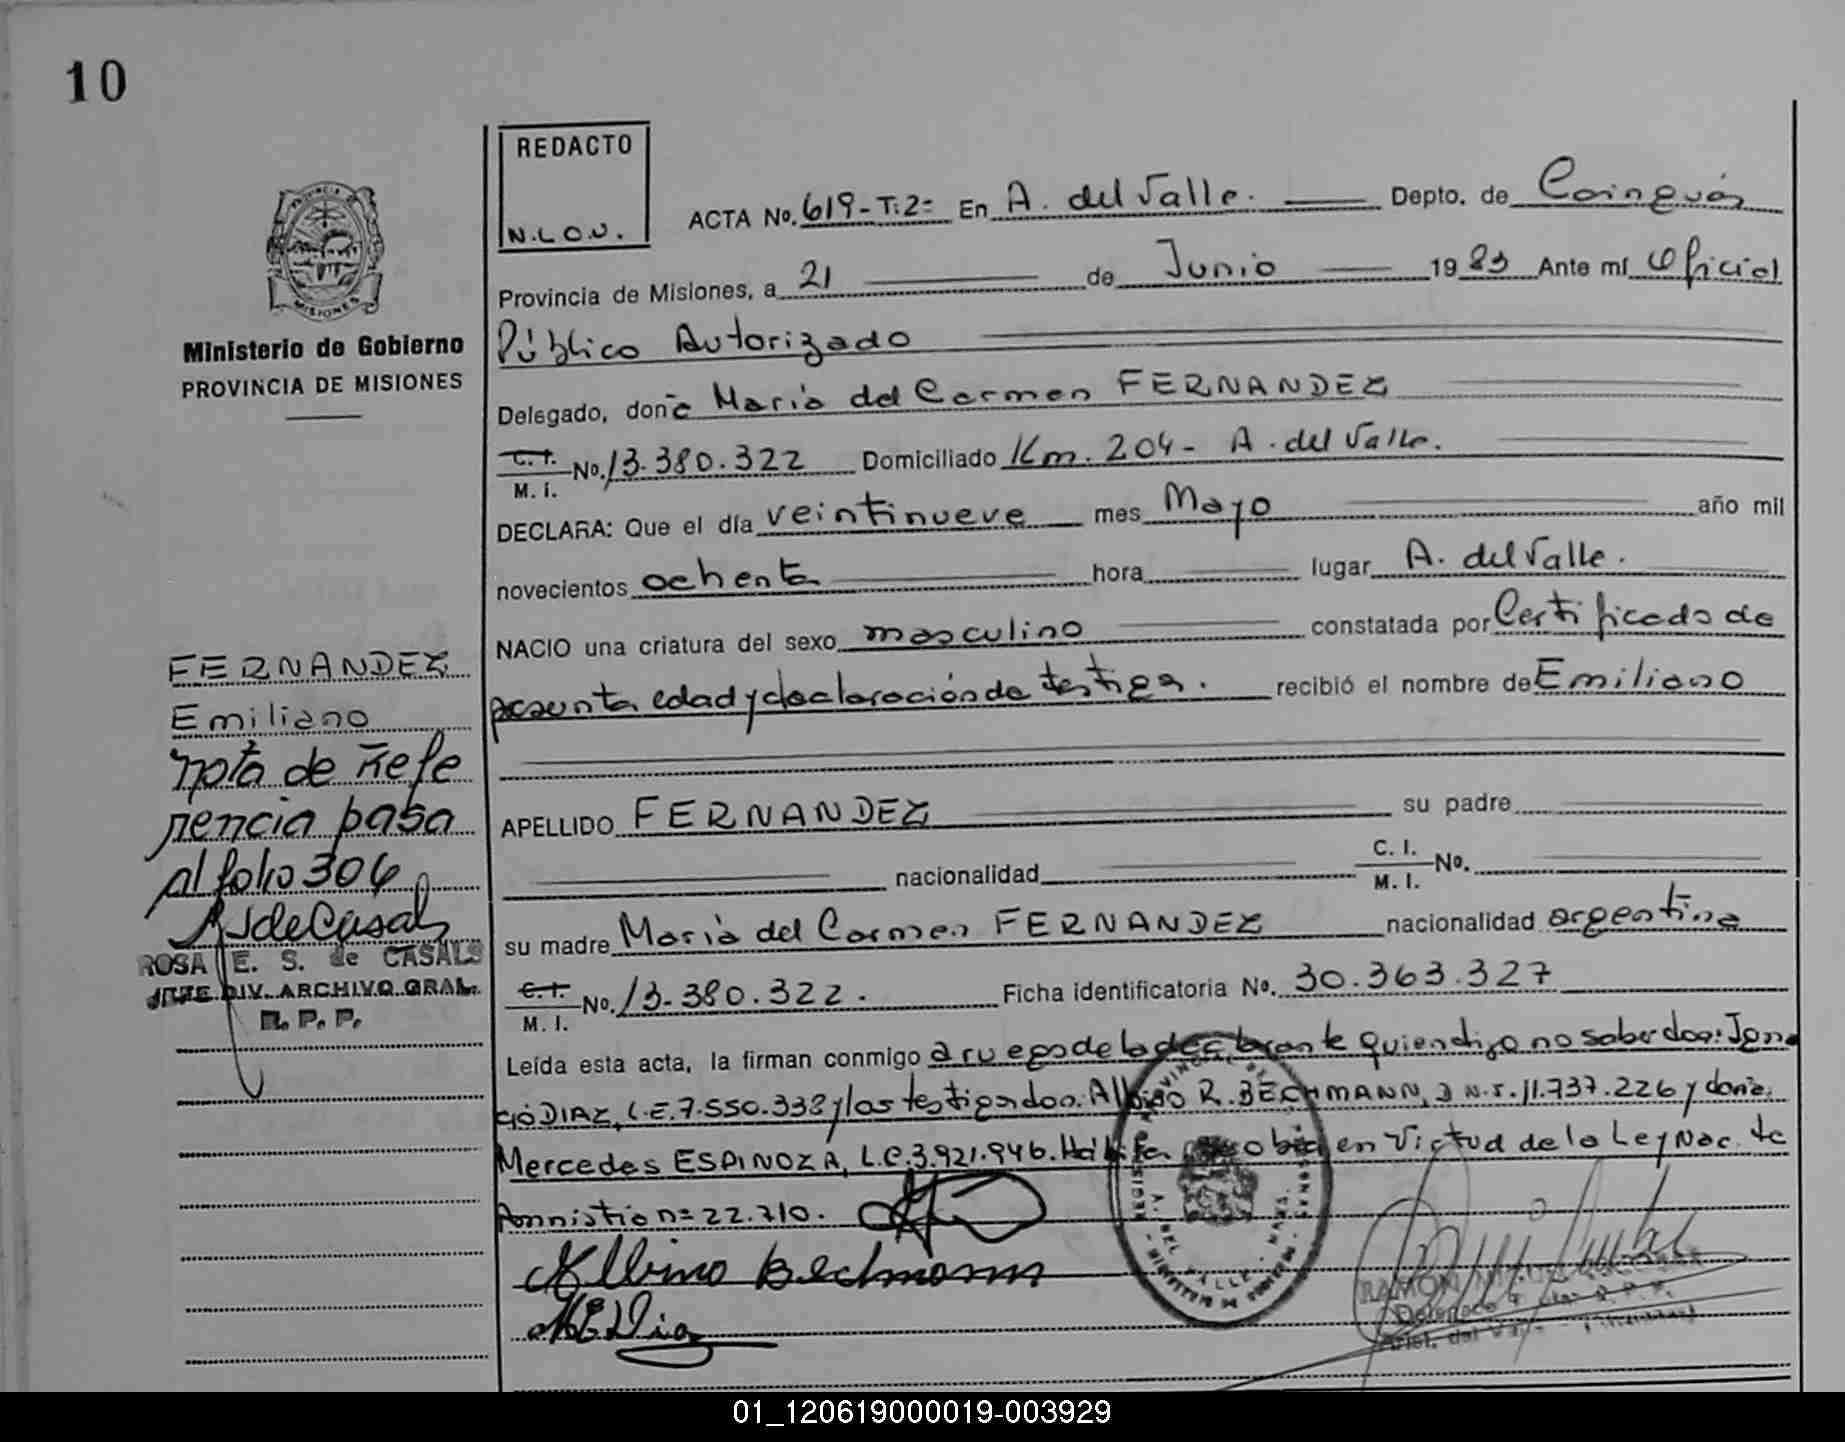 10
REDACTO
N.L.O.U.
ACTA No. 619-T:2= En A. del Valle. Depto. de Cainguás
PROVINCIA
MISIONES
Provincia de Misiones, a 21 de Junio 1983 Ante mí Oficial
Público Autorizado
Ministerio de Gobierno
PROVINCIA DE MISIONES
Delegado, don̄a María del Carmen FERNANDEZ
C. I.
M. I. No. 13.380.322 Domiciliado Km. 204- A. del Valle.
DECLARA: Que el día veintinueve mes Mayo año mil
novecientos ochenta hora lugar A. del Valle.
NACIO una criatura del sexo masculino constatada por Certificado de
presunta edad y declaración de testigos. recibió el nombre de Emiliano
FERNANDEZ
Emiliano
Nota de Refe
rencia pasa
al folio 304
RSdeCasals
ROSA E. S. de CASALS
JEFE DIV. ARCHIVO GRAL.
R. P. P.
APELLIDO FERNANDEZ su padre
nacionalidad C. I.
M. I. No.
su madre María del Carmen FERNANDEZ nacionalidad argentina
C. I.
M. I. No. 13.380.322. Ficha identificatoria No. 30.363.327
Leída esta acta, la firman conmigo a ruego de la declarante quien dijo no saber don: Igna
cio DIAZ, L.E. 7.550.338 y los testigos don. Albino R. BECHMANN, D.N.I. 11.737.226 y doña.
Mercedes ESPINOZA, L.C. 3.921.946. en virtud de la Ley Nac. de
Amnistía nº 22.710.
Albino Bechmann
RAMON
Delegado
Arist. del Valle
01_120619000019-003929